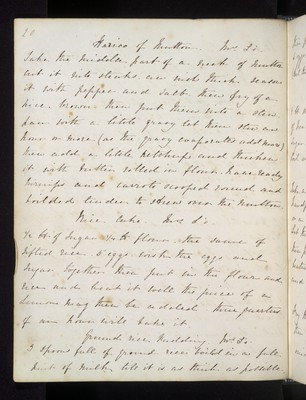 20
Harico of Mutton. Mrs D's.
Take the middle part of a neck of mutton
cut it into steaks an inch thick season
it with pepper and salt then fry of a
nice brown then put them into a stew
pan with a little gravy let them stew an
hour or more (as the gravy evaporates add more)
then add a little ketchup and thicken
it with butter rolled in flour. Have ready
turnips and carrots scooped round and
boiled tender to strew over the mutton
Rice Cake. Mrs D's.
½ lb of Sugar ¼ lb flour the same of
sifted rice 5 eggs whisk the eggs and
sugar together then put in the flour and
rice and beat it well the juice of a
Lemon may then be added three quarters
of an hour will bake it.
Ground rice Pudding Mrs Do.
3 spoons full of ground rice boiled in a full
pint of milk, till it is as thick as possible